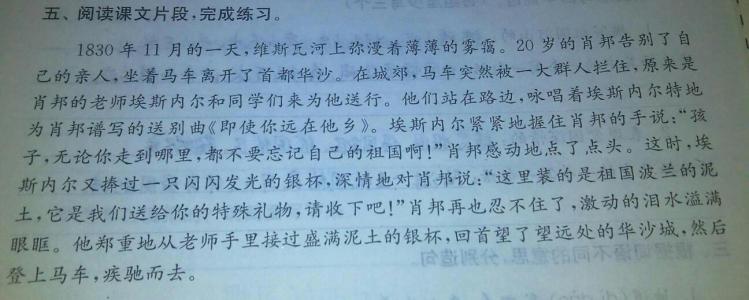 五、阅读课文片段,完成练习。
1830 年 11 月的一天,维斯瓦河上弥漫着薄薄的雾霭。20 岁的肖邦告别了自
己的亲人,坐着马车离开了首都华沙。在城郊,马车突然被一大群人拦住,原来是
肖邦的老师埃斯内尔和同学们来为他送行。他们站在路边,咏唱着埃斯内尔特地
为肖邦谱写的送别曲《即使你远在他乡》。埃斯内尔紧紧地握住肖邦的手说:“孩
子,无论你走到哪里,都不要忘记自己的祖国啊!”肖邦感动地点了点头。这时,埃
斯内尔又捧过一只闪闪发光的银杯,深情地对肖邦说:“这里装的是祖国波兰的泥
土,它是我们送给你的特殊礼物,请收下吧!”肖邦再也忍不住了,激动的泪水溢满
眼眶。他郑重地从老师手里接过盛满泥土的银杯,回首望了望远处的华沙城,然后
登上马车,疾驰而去。